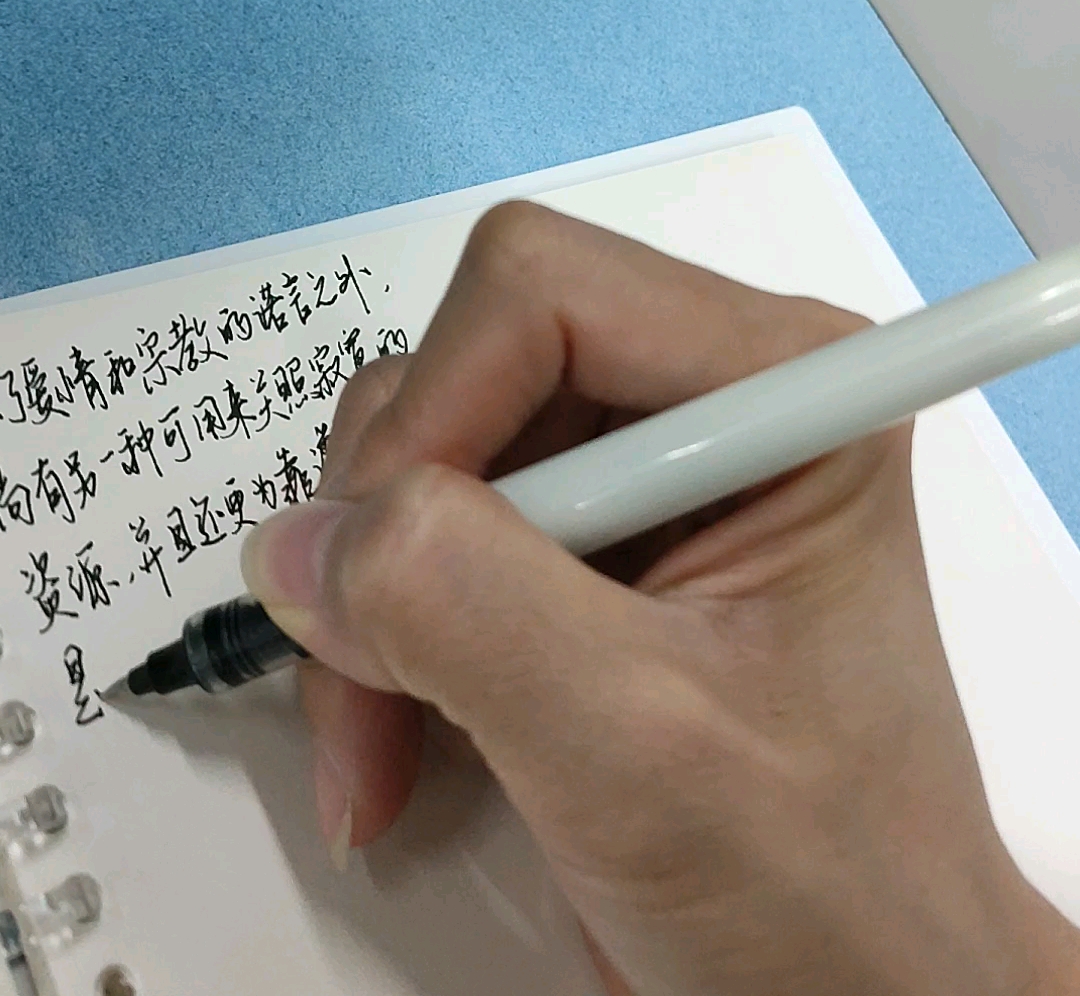 了爱情和宗教的诺言之外，
尚有另一种可用来关照寂寞的
资源，并且还更为靠
是